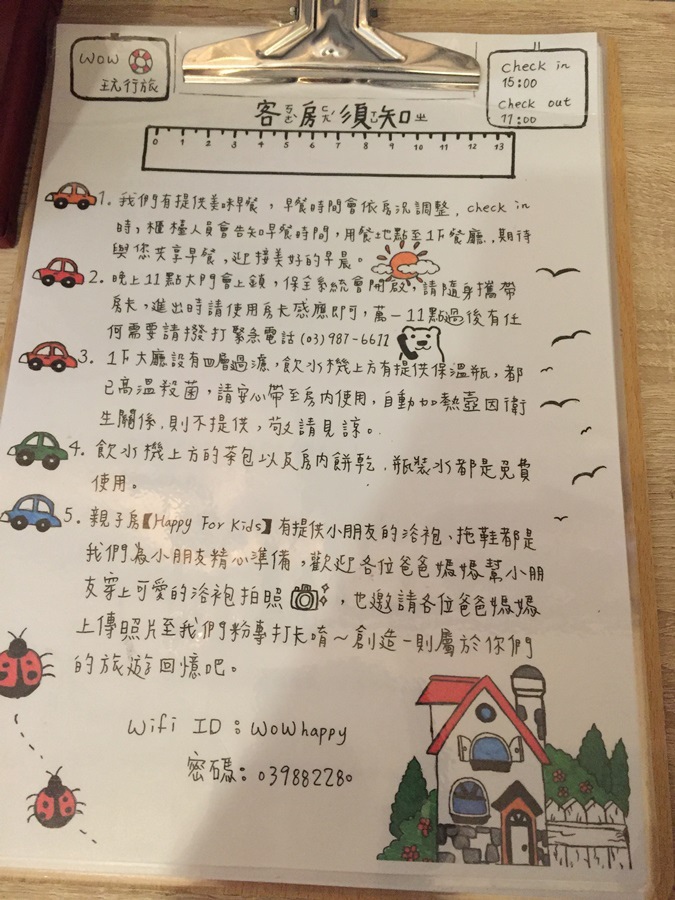 WOW
玩行旅
check in
15:00
check out
11:00
客房須知
0 1 2 3 4 5 6 7 8 9 10 11 12 13
1. 我們有提供美味早餐，早餐時間會依房況調整，check in
時，櫃檯人員會告知早餐時間，用餐地點至1F餐廳，期待
與您共享早餐，迎接美好的早晨。
2. 晚上11點大門會上鎖，保全系統會開啟，請隨身攜帶
房卡，進出時請使用房卡感應即可，萬一11點過後有任
何需要請撥打緊急電話(03)987-6611
3. 1F大廳設有四層過濾，飲水機上方有提供保溫瓶，都
已高溫殺菌，請安心帶至房內使用，自動加熱壺因衛
生關係，則不提供，敬請見諒。
4. 飲水機上方的茶包以及房內餅乾、瓶裝水都是免費
使用。
5. 親子房【Happy For Kids】有提供小朋友的浴袍、拖鞋都是
我們為小朋友精心準備，歡迎各位爸爸媽媽幫小朋
友穿上可愛的浴袍拍照，也邀請各位爸爸媽媽
上傳照片至我們粉專打卡唷～創造一則屬於你們
的旅遊回憶吧。
Wifi ID：WOWhappy
密碼：039882280